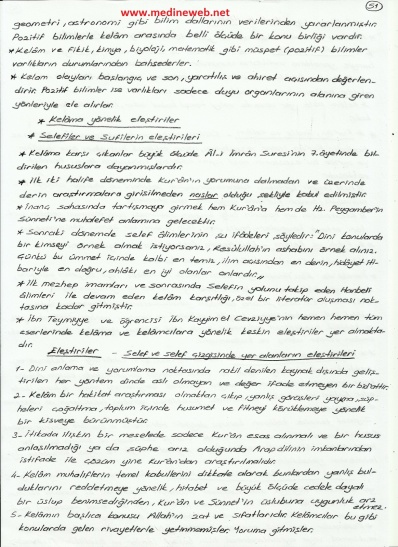 www.medineweb.net
51
geometri, astronomi gibi bilim dallarının verilerinden yararlanmıştır.
Pozitif bilimlerle kelâm arasında belli ölçüde bir konu birliği vardır.
* Kelâm ve Fizik, kimya, biyoloji, matematik gibi müspet (pozitif) bilimler
varlıkların durumlarından bahsederler.
* Kelam olayları başlangıç ve son, yaratılış ve ahiret açısından değerlen-
dirir. Pozitif bilimler ise varlıkları sadece duyu organlarının alanına giren
yönleriyle ele alırlar.
* Kelâma yönelik eleştiriler
* Selefiler ve Sufilerin eleştirileri
* Kelâma karşı çıkanlar büyük ölçüde Âl-i İmrân Suresi'nin 7. âyetinde bil-
dirilen hususlara dayanmışlardır.
* İlk iki halife döneminde Kur'ân'ın yorumuna dalmadan ve üzerinde
derin araştırmalara girişilmeden naslar olduğu şekliyle kabul edilmiştir.
* İnanç sahasında tartışmaya girmek hem Kur'ân'a hem de Hz. Peygamber'in
Sünneti'ne muhalefet anlamına gelecektir.
* Sonraki dönemde selef âlimlerinin şu ifadeleri söyledir: "Dini konularda
bir kimseyi örnek almak istiyorsanız, Rasûlullah'ın ashabını örnek alınız.
Çünkü bu ümmet içinde kalbi en temiz, ilim açısından en derin, hidâyet iti-
bariyle en doğru, ahlâkı en iyi olanlar onlardır."
* İlk mezhep imamları ve sonrasında Selefin yolunu takip eden Hanbelî
âlimleri ile devam eden kelâm karşıtlığı, özel bir literatür oluşması nok-
tasına kadar gitmiştir.
* İbn Teymiyye ve öğrencisi İbn Kayyim el Cevziyye'nin hemen hemen tüm
eserlerinde kelâma ve kelâmcılara yönelik keskin eleştiriler yer almakta-
dır.
Eleştiriler - Selef ve selef çizgisinde yer alanların eleştirileri
1- Dini anlama ve yorumlama noktasında nakil denilen kaynak dışında geliş-
tirilen her yöntem dinde aslı olmayan ve değer ifade etmeyen bir bid'attır.
2- Kelâm bir hakikat araştırması olmaktan çıkıp, yanlış görüşleri yayma, şüp-
heleri çoğaltma, toplum içinde husumet ve fitneyi körüklemeye yönelik
bir kisveye bürünmüştür.
3- İtikada ilişkin bir meselede sadece Kur'ân esas alınmalı ve bir husus
anlaşılmadığı ya da şüphe arız olduğunda Arap dilinin imkanlarından
istifade ile çözüm yine Kur'an'dan araştırılmalıdır.
4- Kelâm muhaliflerin temel kabullerini dikkate alarak bunlardan yanlış bul-
duklarını reddetmeye yönelik, hitabet ve büyük ölçüde cedele dayalı
bir üslup benimsediğinden, Kur'ân ve Sünnet'in üslubuna uygunluk arz
etmez.
5- Kelâmın başlıca konusu Allah'ın zat ve sıfatlarıdır. Kelâmcılar bu gibi
konularda gelen rivayetlerle yetinmemişler, yoruma gitmişler.